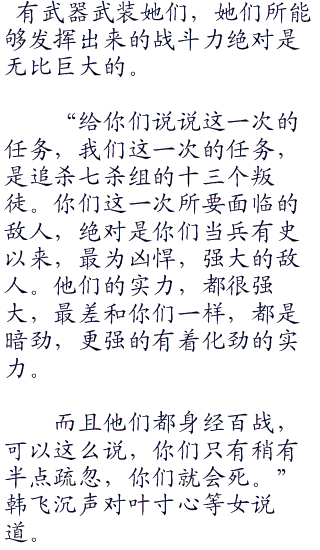 有武器武装她们，她们所能
够发挥出来的战斗力绝对是
无比巨大的。
“给你们说说这一次的
任务，我们这一次的任务，
是追杀七杀组的十三个叛
徒。你们这一次所要面临的
敌人，绝对是你们当兵有史
以来，最为凶悍，强大的敌
人。他们的实力，都很强
大，最差和你们一样，都是
暗劲，更强的有着化劲的实
力。
而且他们都身经百战，
可以这么说，你们只有稍有
半点疏忽，你们就会死。”
韩飞沉声对叶寸心等女说
道。